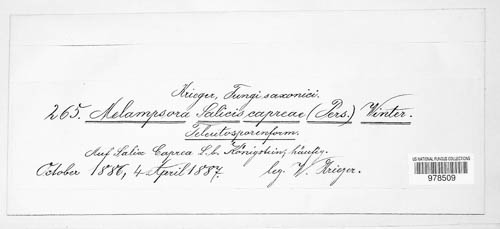 Krieger, Fungi saxonici.
265. Melampsora Salicis capreae (Pers.) Winter.
Teleutosporenform.
Auf Salix Caprea L. b. Königstein, häufig.
October 1886, 4 April 1887. leg. W. Krieger.
US NATIONAL FUNGUS COLLECTIONS
978509